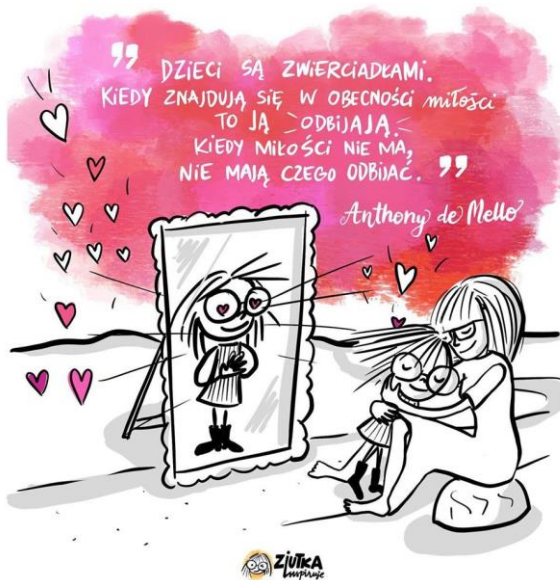 " DZIECI SĄ ZWIERCIADŁAMI.
KIEDY ZNAJDUJĄ SIĘ W OBECNOŚCI miłości
TO JĄ ODBIJAJĄ.
KIEDY MIŁOŚCI NIE MA,
NIE MAJĄ CZEGO ODBIJAĆ. "
Anthony de Mello
ZIUTKA
inspiruje